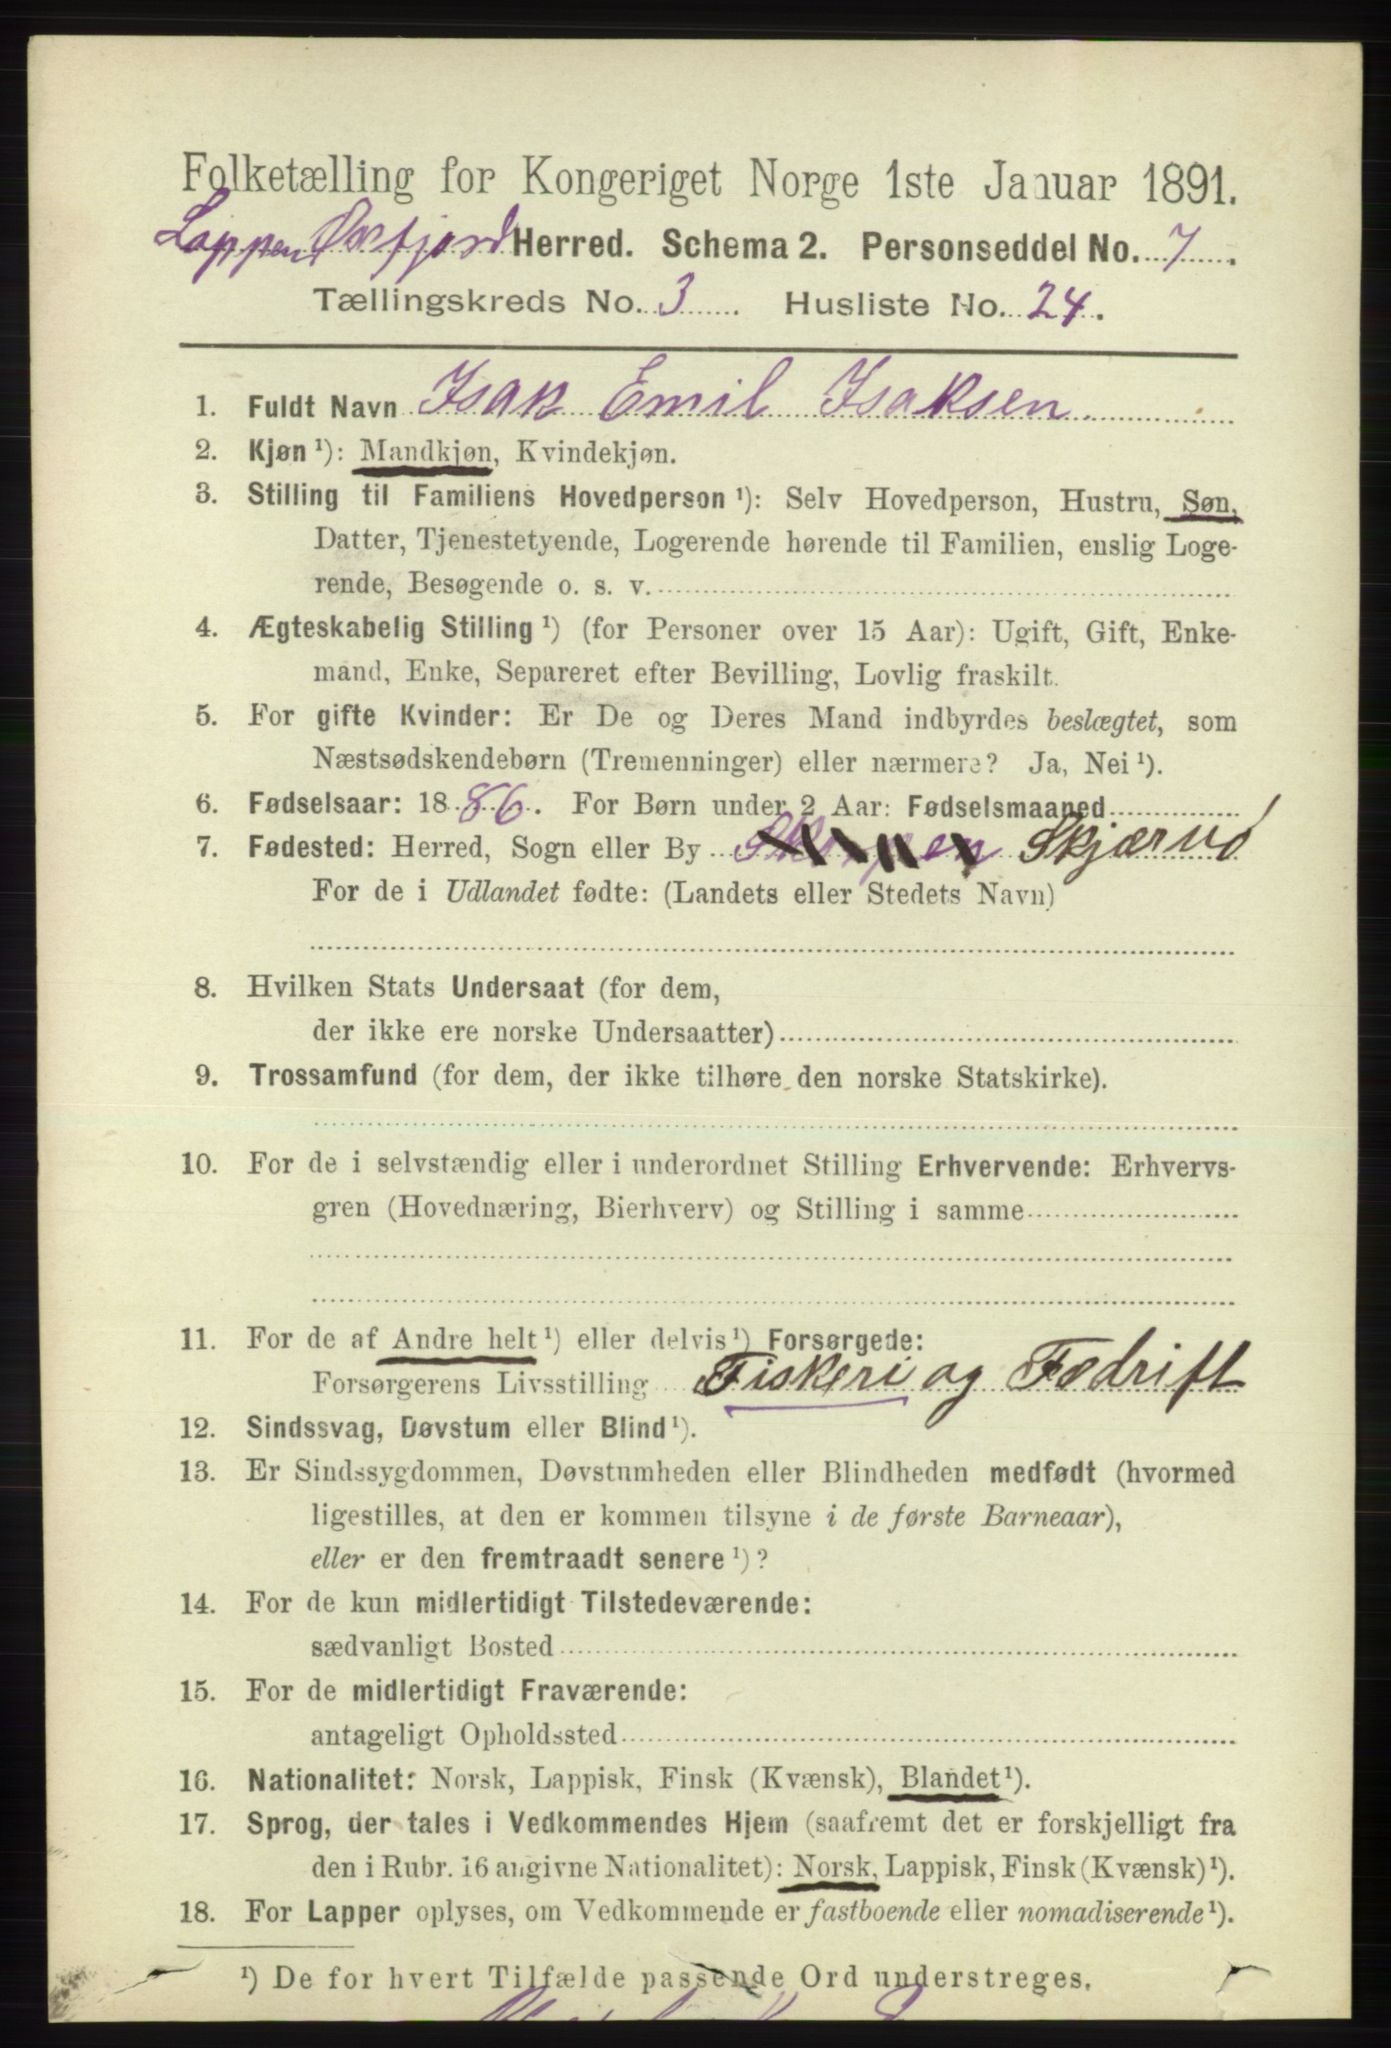 Folketælling for Kongeriget Norge 1ste Januar 1891.
Herred. Schema 2. Personseddel No. 7
Tællingskreds No. 3 Husliste No. 24.
1. Fuldt Navn Isak Emil Isaksen.
2. Kjøn ¹): Mandkjøn, Kvindekjøn.
3. Stilling til Familiens Hovedperson ¹): Selv Hovedperson, Hustru, Søn,
Datter, Tjenestetyende, Logerende hørende til Familien, enslig Loge-
rende, Besøgende o. s. v.
4. Ægteskabelig Stilling ¹) (for Personer over 15 Aar): Ugift, Gift, Enke-
mand, Enke, Separeret efter Bevilling, Lovlig fraskilt.
5. For gifte Kvinder: Er De og Deres Mand indbyrdes beslægtet, som
Næstsødskendebørn (Tremenninger) eller nærmere? Ja, Nei ¹).
6. Fødselsaar: 1886. For Børn under 2 Aar: Fødselsmaaned
7. Fødested: Herred, Sogn eller By Skjærvø
For de i Udlandet fødte: (Landets eller Stedets Navn)
8. Hvilken Stats Undersaat (for dem,
der ikke ere norske Undersaatter)
9. Trossamfund (for dem, der ikke tilhøre den norske Statskirke).
10. For de i selvstændig eller i underordnet Stilling Erhvervende: Erhvervs-
gren (Hovednæring, Bierhverv) og Stilling i samme
11. For de af Andre helt ¹) eller delvis ¹) Forsørgede:
Forsørgerens Livsstilling Fiskeri og Fædrift
12. Sindssvag, Døvstum eller Blind ¹).
13. Er Sindssygdommen, Døvstumheden eller Blindheden medfødt (hvormed
ligestilles, at den er kommen tilsyne i de første Barneaar),
eller er den fremtraadt senere ¹)?
14. For de kun midlertidigt Tilstedeværende:
sædvanligt Bosted
15. For de midlertidigt Fraværende:
antageligt Opholdssted
16. Nationalitet: Norsk, Lappisk, Finsk (Kvænsk), Blandet ¹).
17. Sprog, der tales i Vedkommendes Hjem (saafremt det er forskjelligt fra
den i Rubr. 16 angivne Nationalitet): Norsk, Lappisk, Finsk (Kvænsk) ¹).
18. For Lapper oplyses, om Vedkommende er fastboende eller nomadiserende ¹).
¹) De for hvert Tilfælde passende Ord understreges.